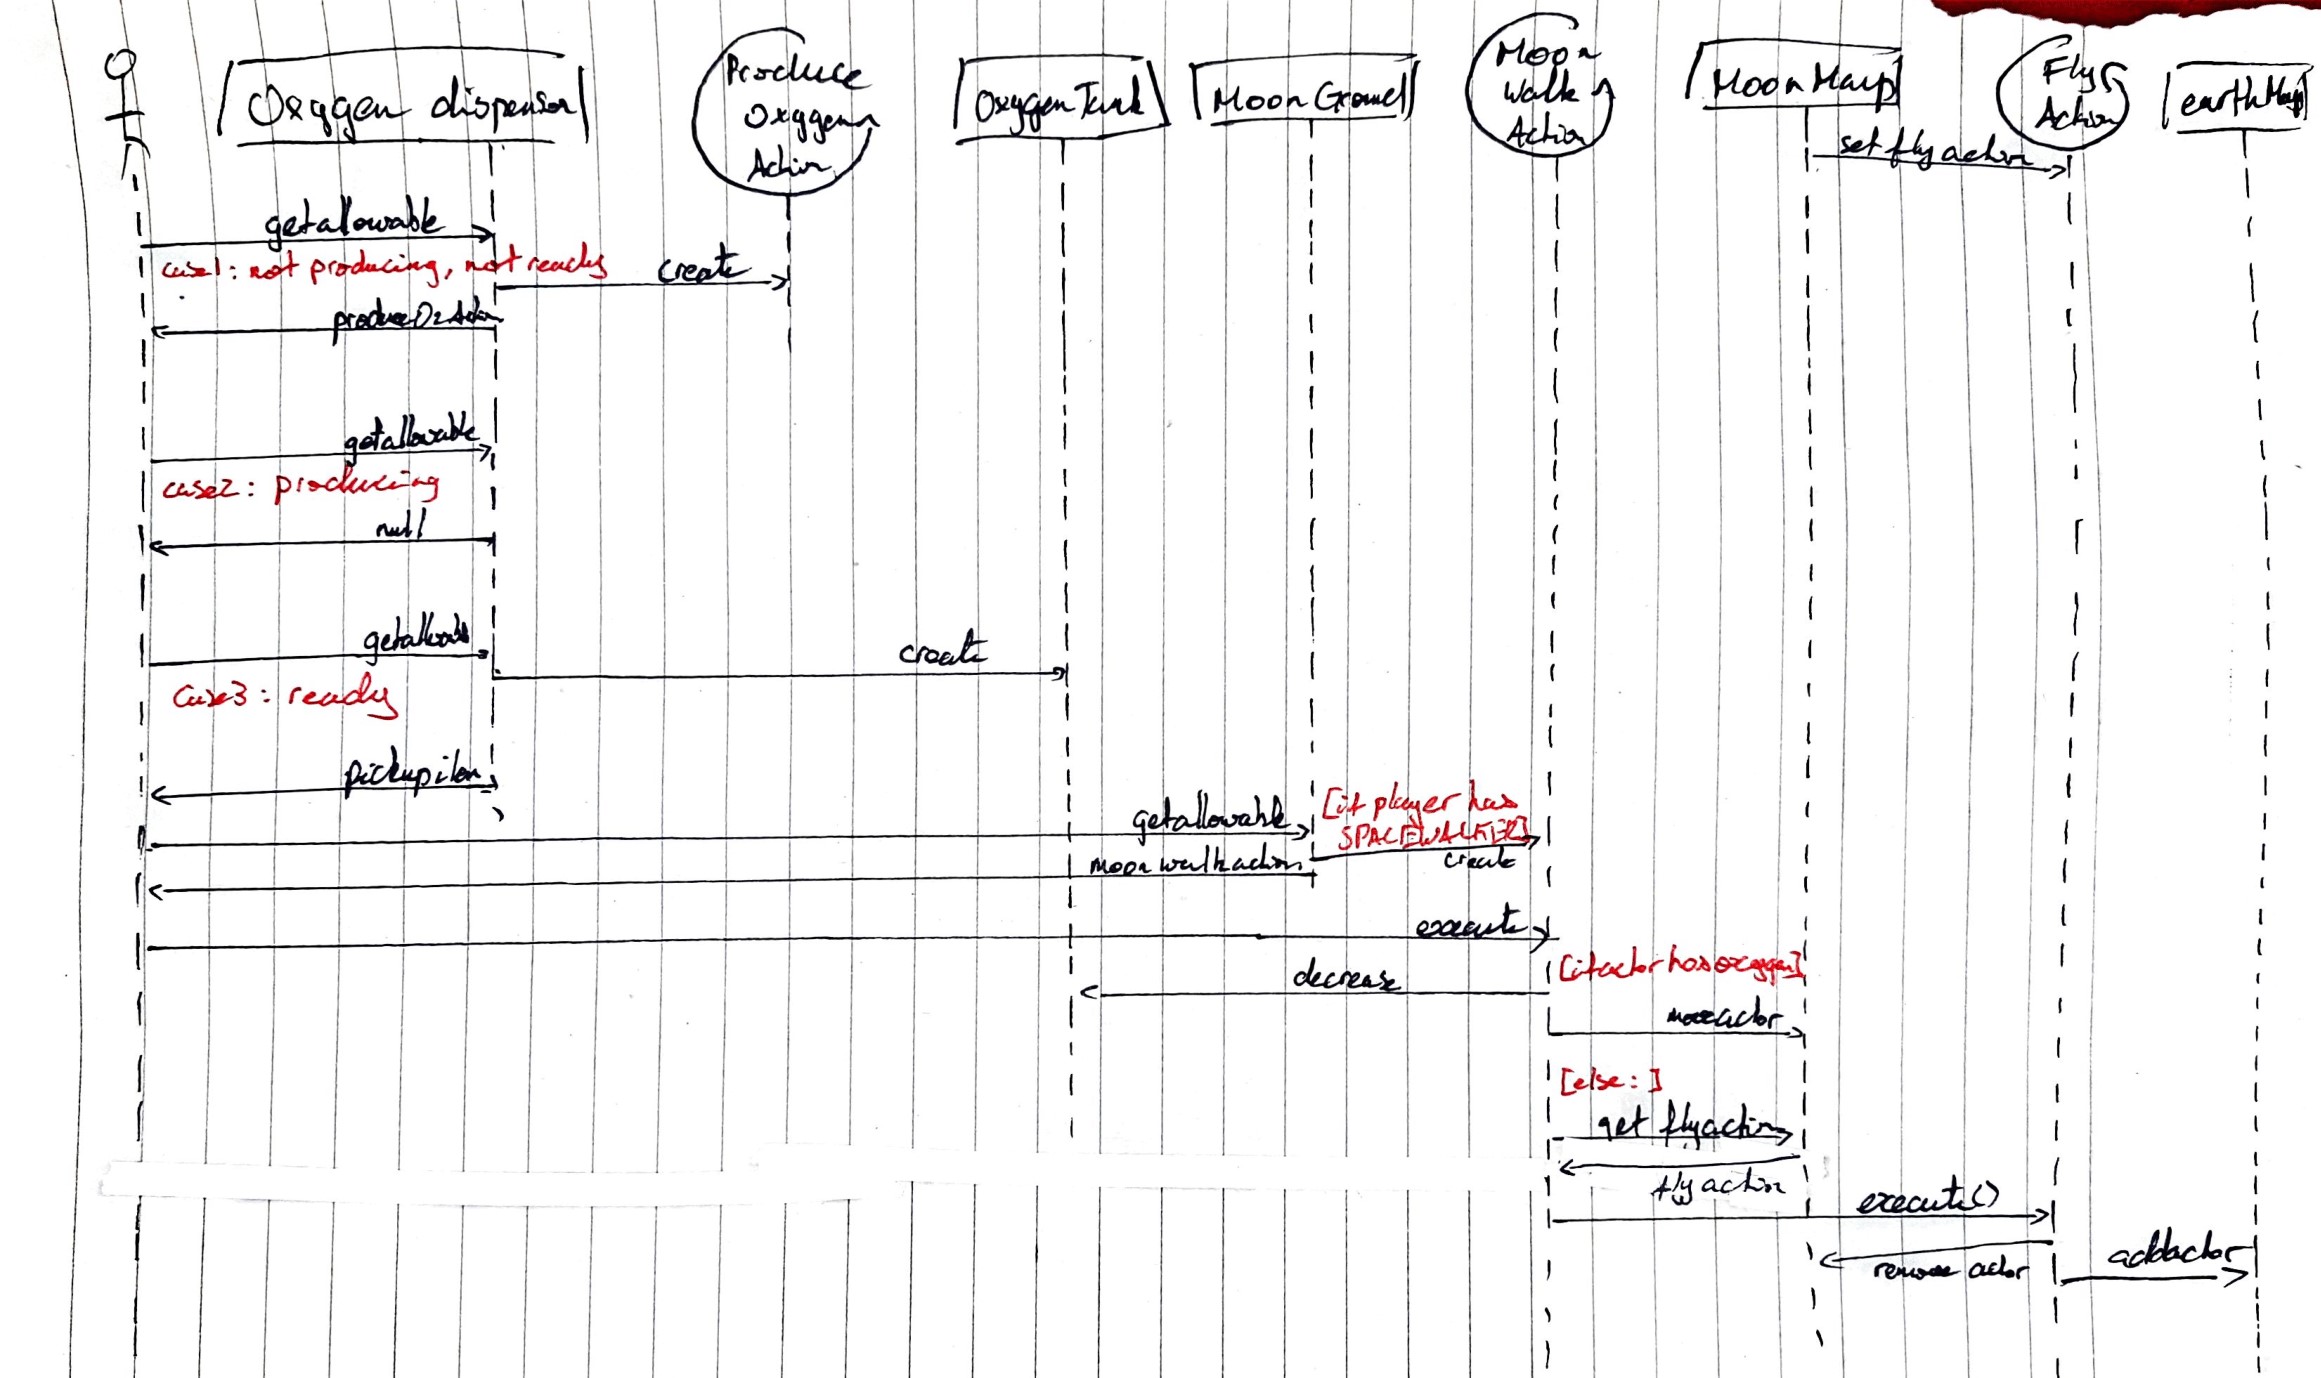 Oxygen dispensor
Produce
Oxygen
Action
Oxygen Tank
Moon Ground
Moon
Walk
Action
Moon Map
Fly
Action
earth Map
set fly action
getallowable
case1: not producing, not ready
create
produce O2 Action
getallowable
case2: producing
null
getallowable
create
case3: ready
pickupitem
getallowable
[if player has
SPACEWALKER]
create
moon walk action
execute
[if actor has oxygen]
decrease
moveactor
[else:]
get flyaction
fly action
execute()
remove actor
addactor